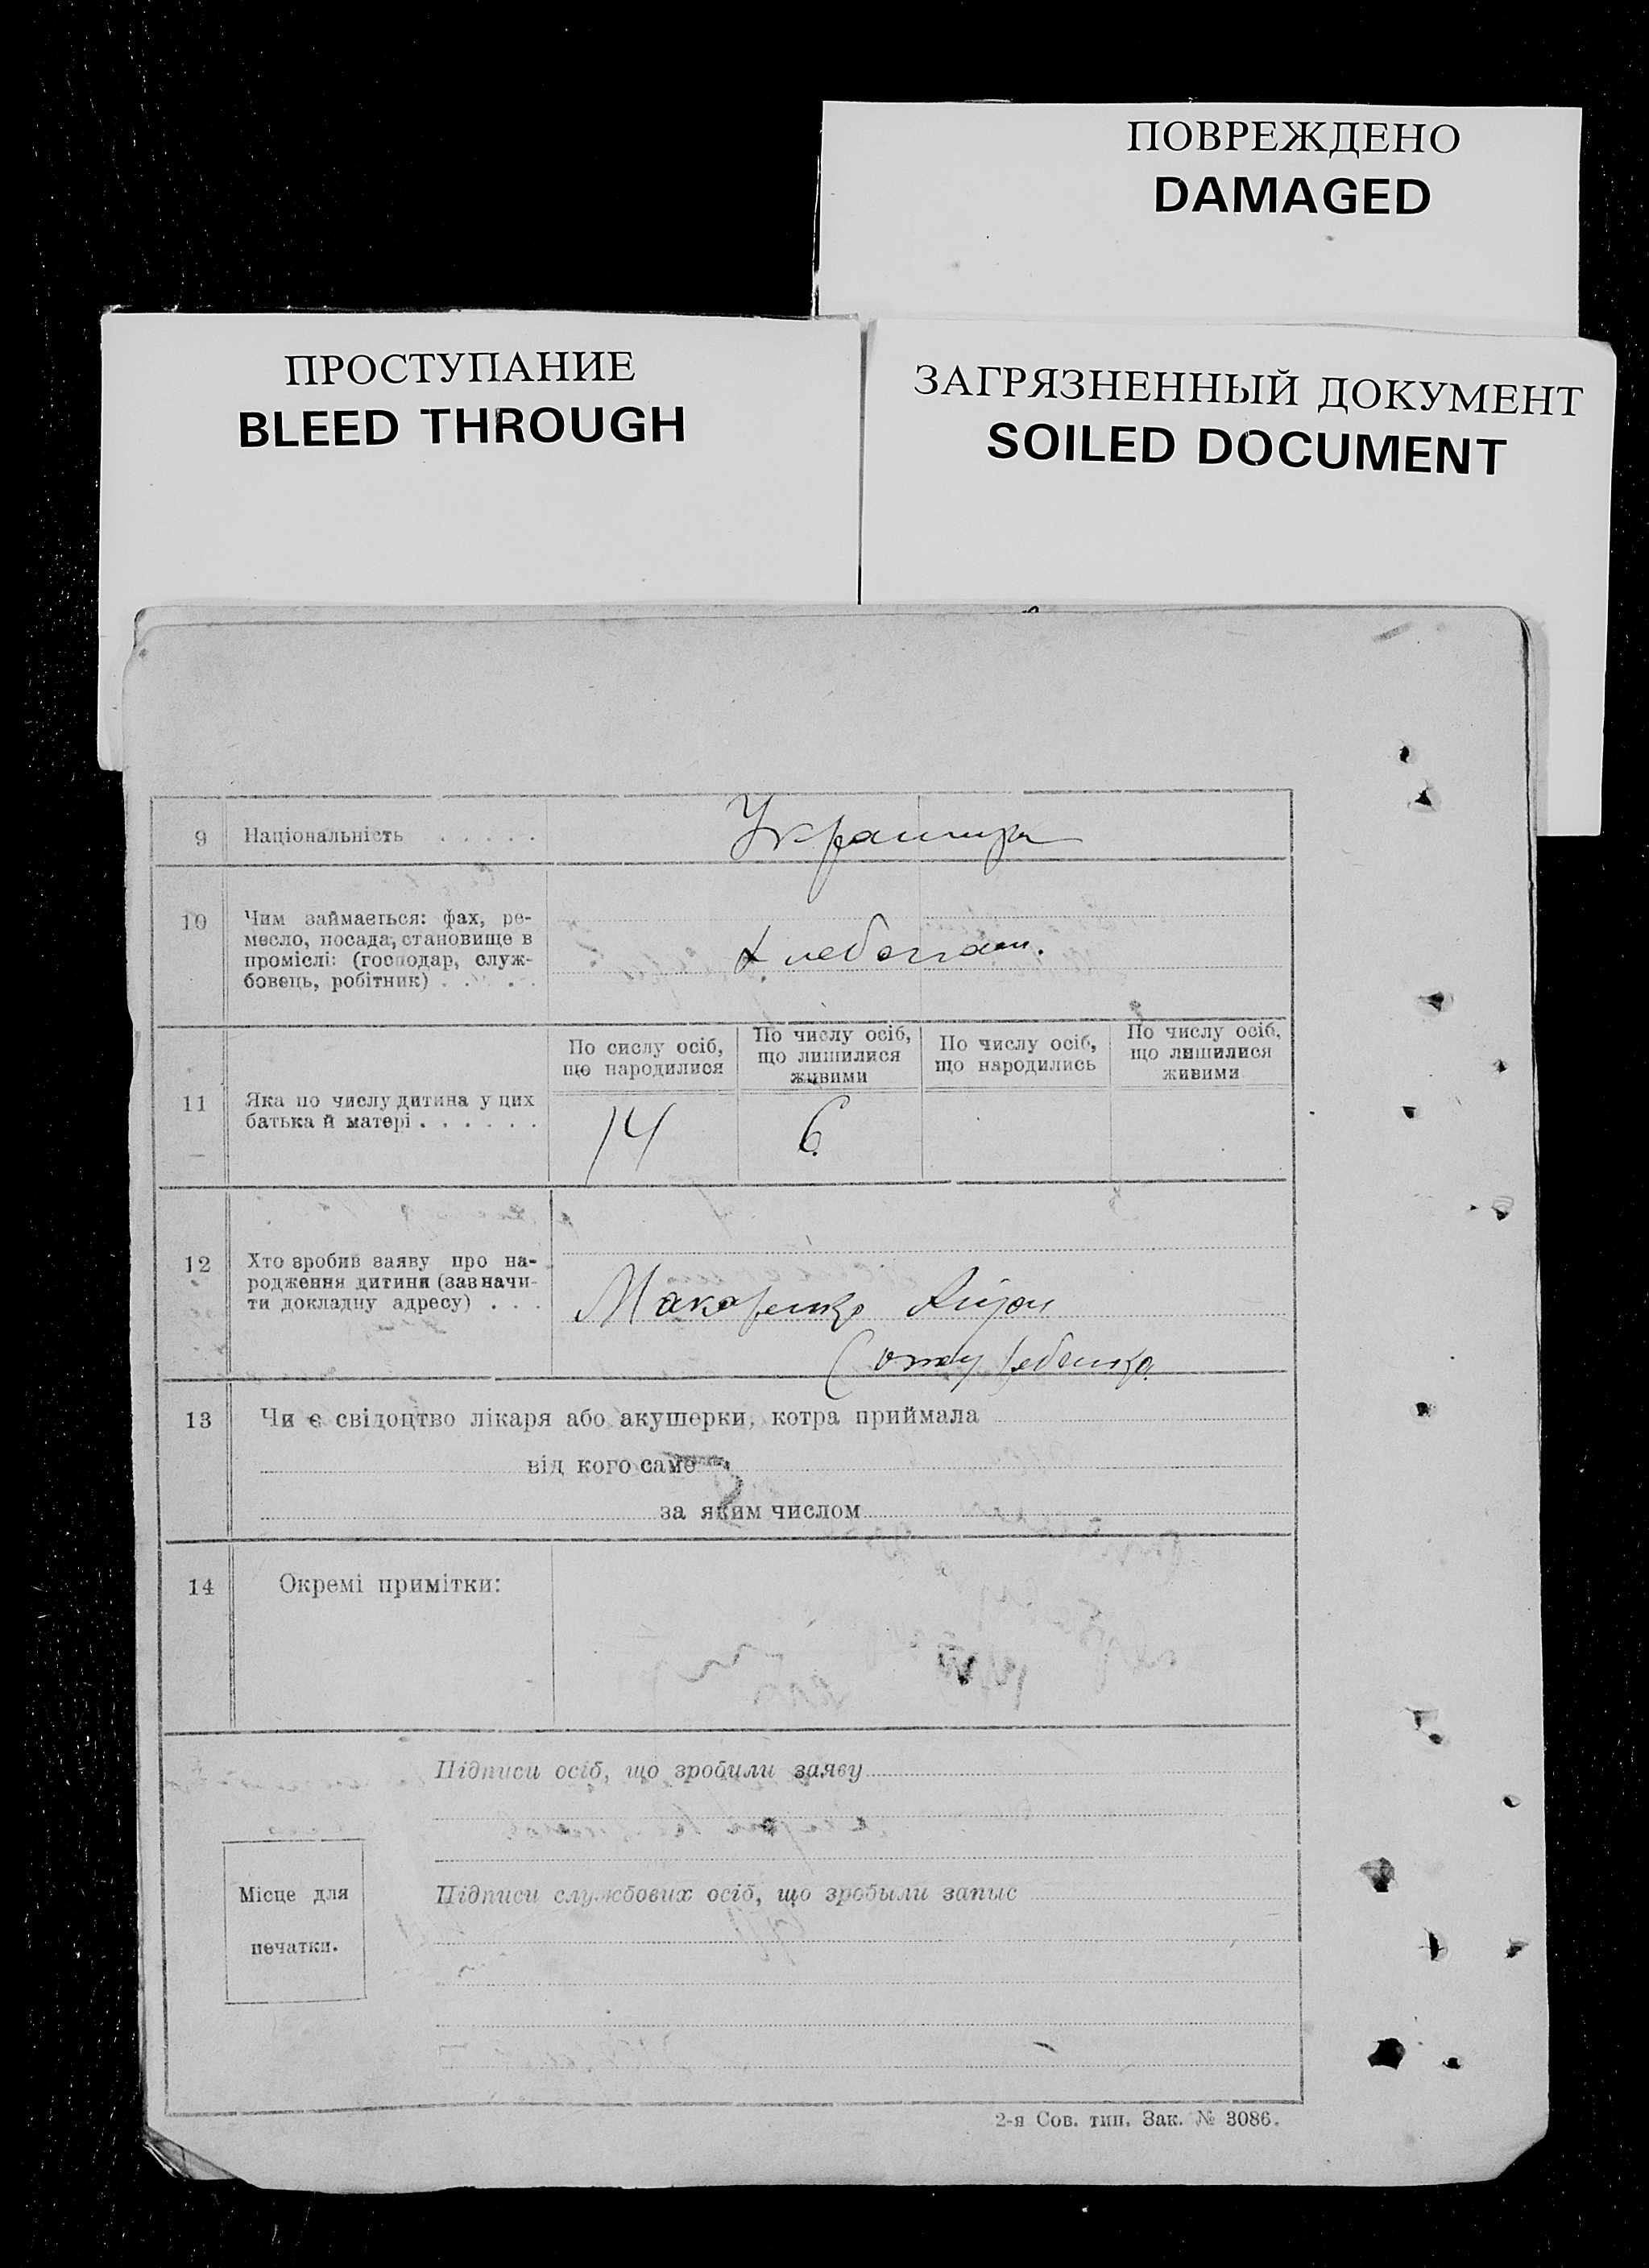 ПОВРЕЖДЕНО
DAMAGED
ПРОСТУПАНИЕ
BLEED THROUGH
ЗАГРЯЗНЕННЫЙ ДОКУМЕНТ
SOILED DOCUMENT
9 Національність . . . . .
10 Чим займається: фах, ре-
месло, посада, становище в
проміслі: (господар, служ-
бовець, робітник) . . . . .
Хлебопаш.
По сислу осіб,
що народилися
По числу осіб,
що лишилися
живими
По числу осіб,
що народились
По числу осіб,
що лишилися
живими
11 Яка по числу дитина у цих
батька й матері . . . . . .
14 6
12 Хто зробив заяву про на-
родження дитини (зазначи-
ти докладну адресу) . . .
Макаренко
13 Чи є свідоцтво лікаря або акушерки, котра приймала
від кого саме
за яким числом
14 Окремі примітки:
Підписи осіб, що зробили заяву
Місце для
печатки.
Підписи службових осіб, що зробыли запис
2-я Сов. тип. Зак. № 3086.